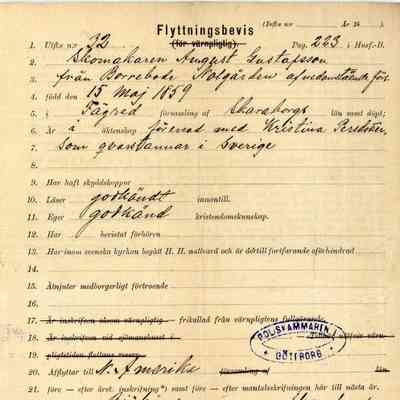 Flyttningsbevis
(för värnpligtig).
(Infks nr År 18 ).
1. Utfks nr 32 Pag. 223 i Husf.-B.
2. Skomakaren August Gustafsson
3. från Borrebode Nolgården af nedanstående förs.
4. född den 15 Maj 1859
5. i Fägred församling af Skaraborgs län samt döpt;
6. Är i äktenskap förenad med Kristina Persdotter,
7. som qvarstannar i Sverige
8.
9. Har haft skyddskoppor
10. Läser godkändt innantill.
11. Eger godkänd kristendomskunskap.
12. Har bevistat förhören
13. Har inom svenska kyrkan begått H. H. nattvard och är dertill fortfarande oförhindrad
14.
15. Åtnjuter medborgerligt förtroende
16.
17. Är inskrifven såsom värnpligtig – frikallad från värnpligtens fullgörande
18. Är inskrifven vid sjömanshuset i
19. pligtstiden flottans reserv
20. Afflyttar till N. Amerika församling af län
21. före – efter året. inskrifning*) samt före – efter mantalsskrifningen här till nästa år.
POLISKAMMAREN I
GÖTEBORG